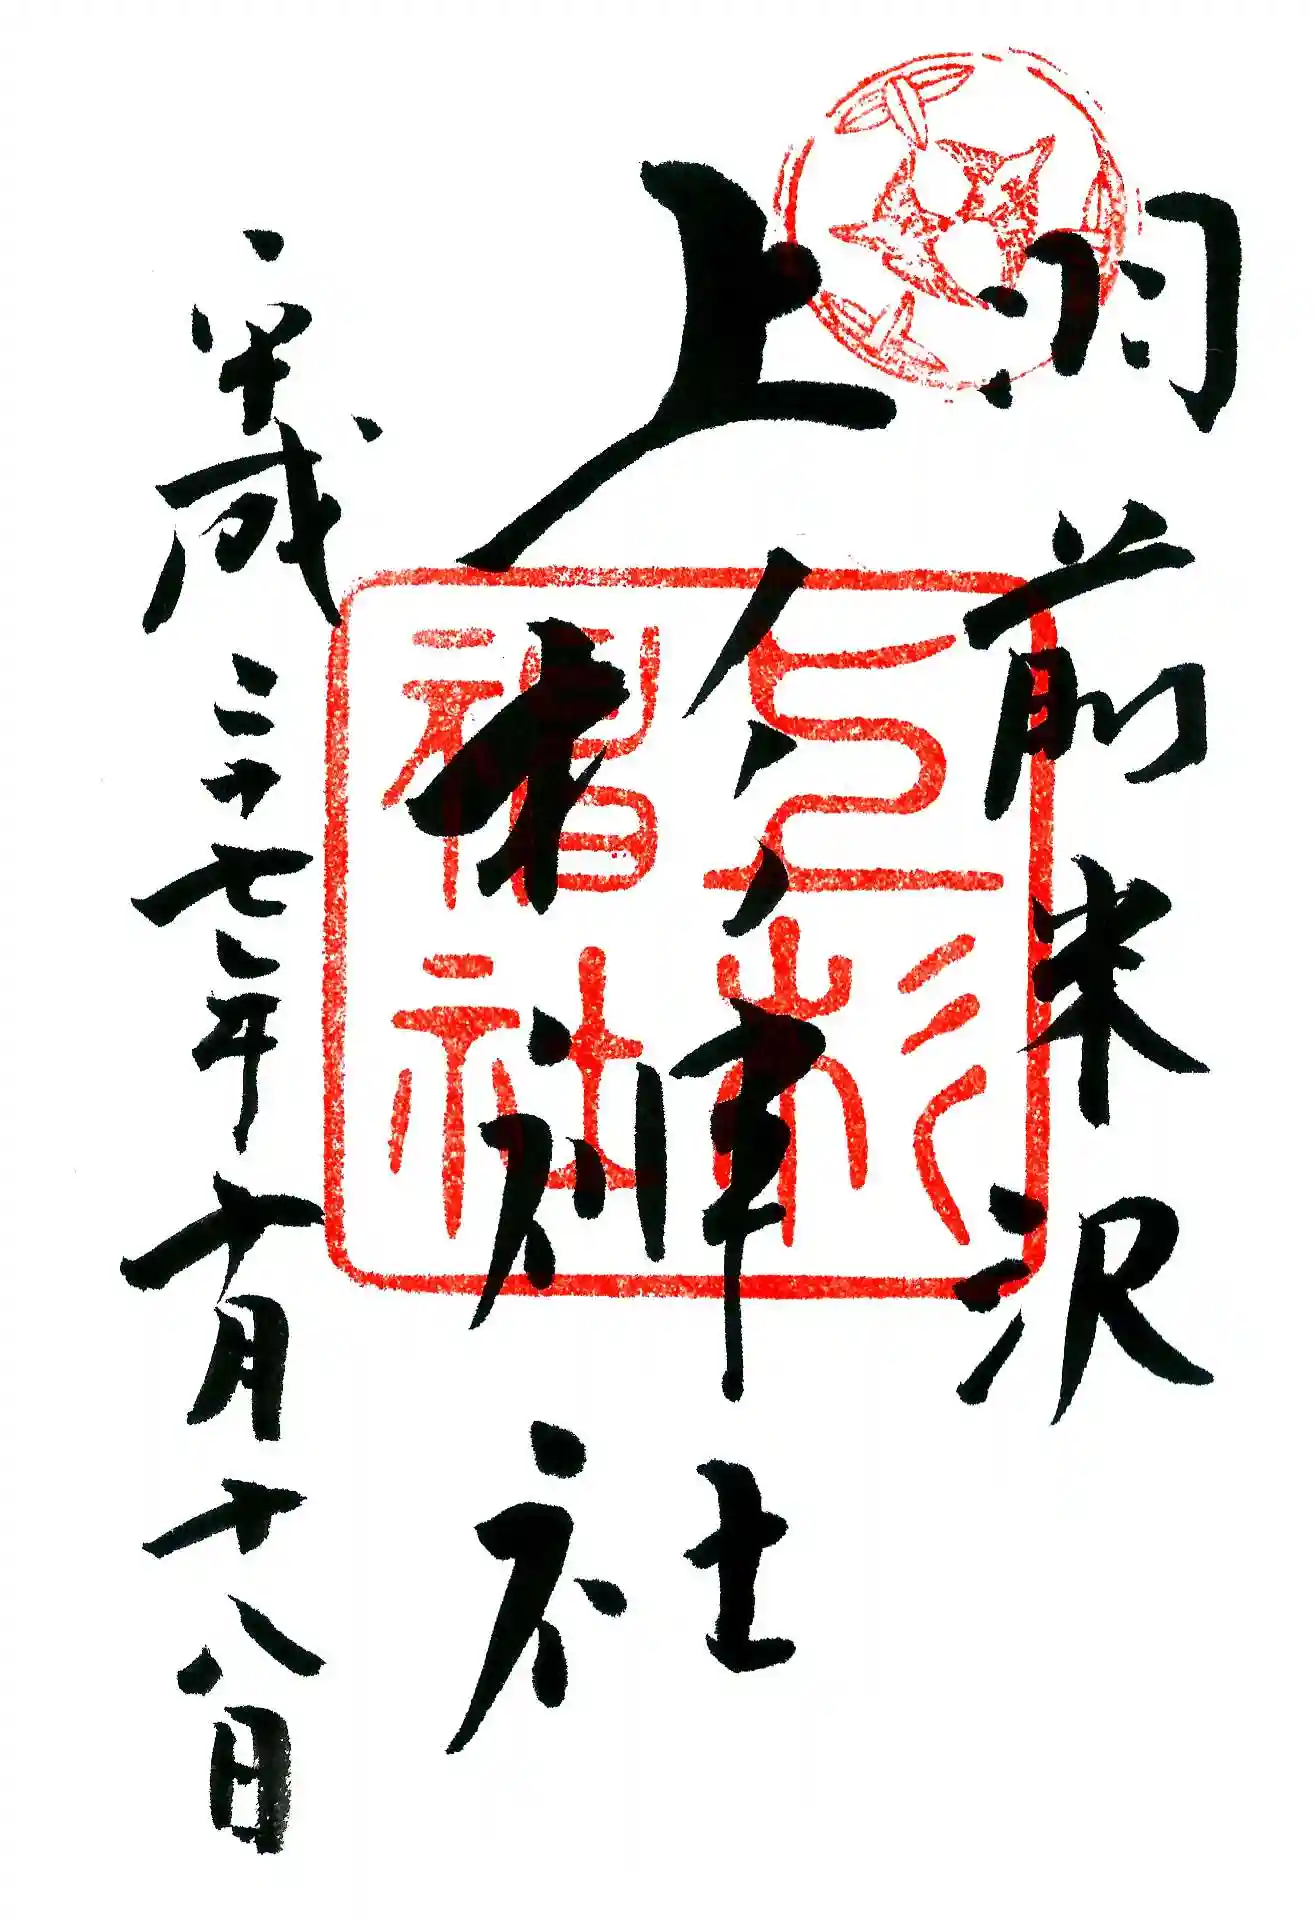 羽前米沢
上杉神社
平成二十七年十月十八日
上杉
神社